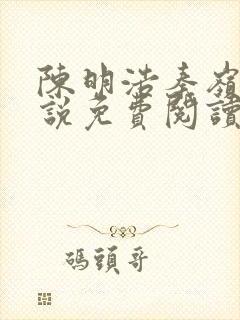 陳明浩秦嶺
說免費閱讀
碼頭哥